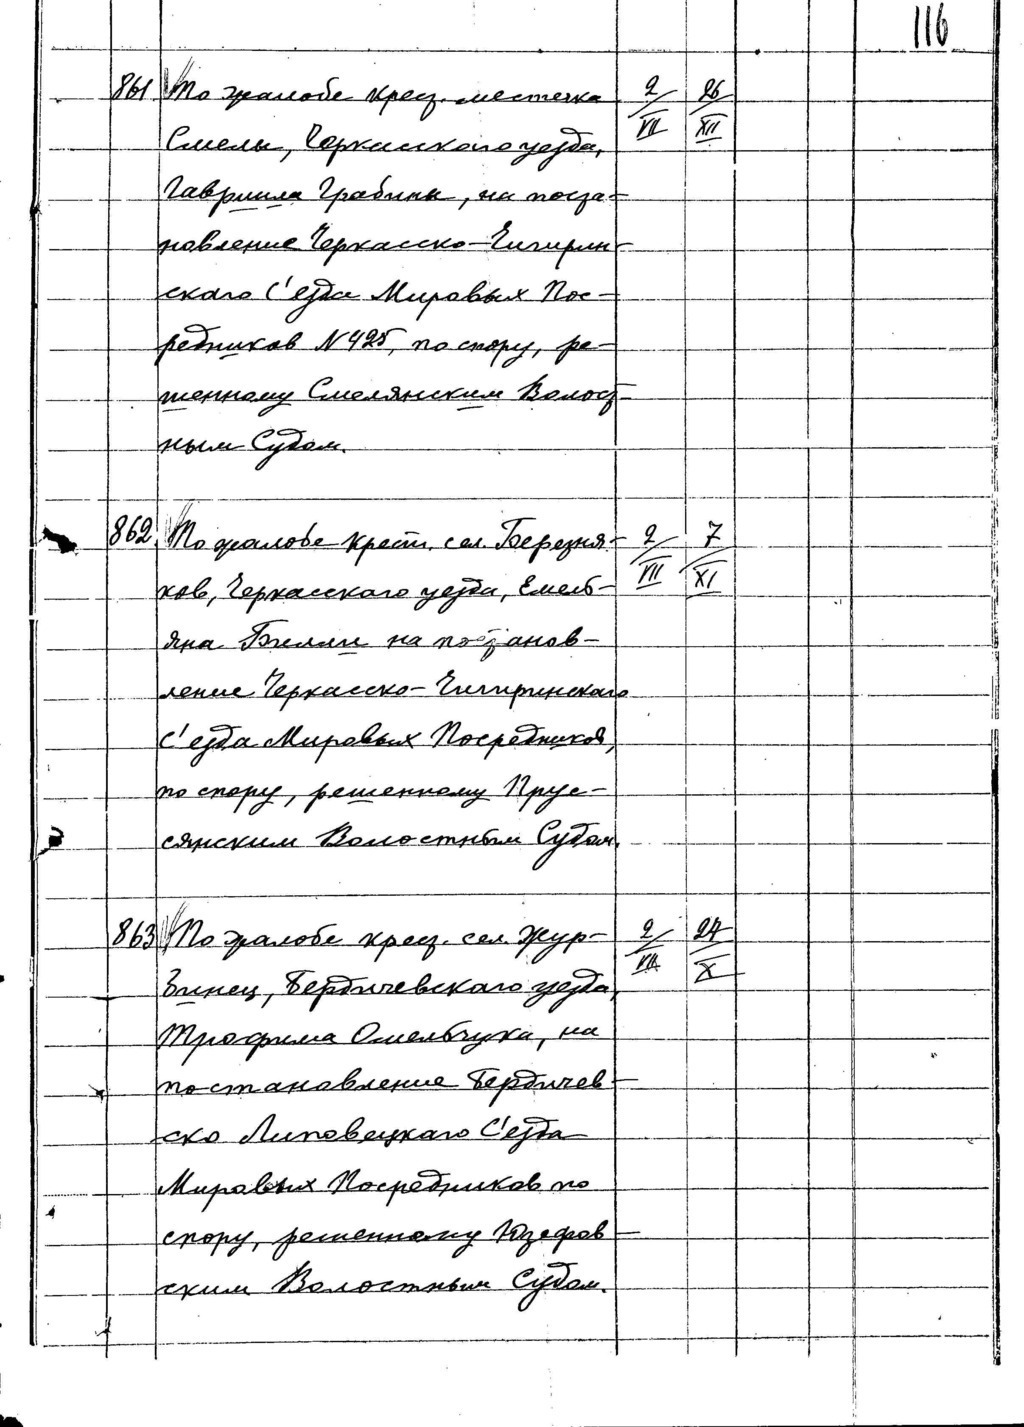 116
861 По жалобе крест. местечка 2/VII 26/XII
Смелы, Черкасского уезда,
Гавриила Грабины, на поста-
новление Черкасско-Чигирин-
скаго С'езда Мировых Пос-
редников N 425, по спору, ре-
шенному Смелянским Волост-
ным Судом.
862 По жалобе крест. сел. Березня- 2/VII 7/XI
ков, Черкасскаго уезда, Емель-
яна на постанов-
ление Черкасско-Чигиринскаго
С'езда Мировых Посредников,
по спору, решенному Прус-
сянским Волостным Судом.
863 По жалобе крест. сел. Жур- 2/VII 24/X
бинец, Бердичевскаго уезда,
Трофима Омельчука, на
постановление Бердичев-
ско Липовецкаго С'езда
Мировых Посредников по
спору, решенному Юзефов-
ским Волостным Судом.